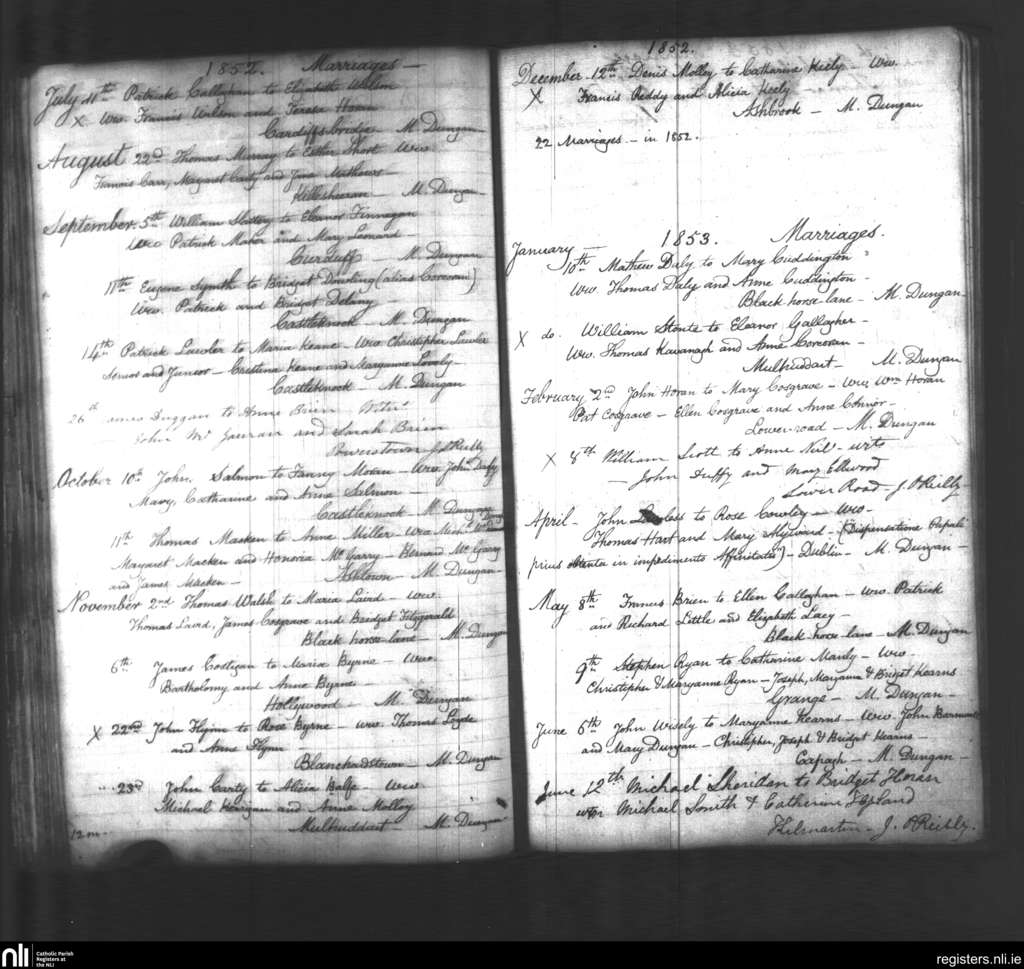 1852. Marriages —
July 4th Patrick Callaghan to Elizabeth Wilson
X Ww. Francis Wilson and Teresa Horan
Cardiffsbridge M Dungan
August 22nd Thomas Murray to Esther Short Ww
Francis Carr, Margaret Carty and Jane Mathews —
M. Dungan
September 5th William to Eleanor Finnegan
Ww Patrick Maher and Mary Leonard —
Curduff M Dungan
11th Eugene Smyth to Bridget Dowling (alias Corcoran)
Ww. Patrick and Bridget Delany —
Castleknock — M. Dungan
14th Patrick Lawler to Maria Keane — Ww Christopher Lawler
Senior and Junior — Cristina Keane and Maryanne Lovely
Castleknock — M Dungan
26th ames Duggan to Anne Brien
John Mc and Sarah Brien
Powerstown J O'Reilly
October 10th John Salmon to Fanny Moran — Ww. John Duffy
Mary, Catharine and Anne Salmon —
Castleknock — M. Dungan
11th Thomas Macken to Anne Miller — Ww
Margaret Macken and Honoria McGarry — Bernard McGarry
and James Macken — Ashtown — M. Dungan —
November 2nd Thomas Walsh to Maria Laird — Ww.
Thomas Laird, James Cosgrave and Bridget Fitzgerald
Black horse lane — M. Dungan
6th James Costigan to Maria Byrne — Ww.
Bartholomy and Anne Byrne
Hollywood — M. Dungan
X 22nd John Flynn to Rose Byrne Ww. Thomas
and Anne Flynn —
Blanchardstown — M. Dungan
23rd John Carty to Alicia Balfe — Ww
Michael Kerrigan and Anne Molloy
Mulhuddart — M. Dungan
12 m
1852.
December 12th Denis Molloy to Catharine Keely — Ww.
X Francis Reddy and Alicia Keely —
Ashbrook — M. Dungan
22 Marriages — in 1852.
1853. Marriages.
January —
10th Mathew Daly to Mary Cuddington
Ww. Thomas Daly and Anne Cuddington —
Black horse-lane — M. Dungan —
X do. William Stonte to Eleanor Gallagher —
Ww. Thomas Kavanagh and Anne Corcoran —
Mulhuddart — M. Dungan
February 2nd John Horan to Mary Cosgrave — Ww Wm Horan
Pat Cosgrave — Ellen Cosgrave and Anne Connor —
Lower-road — M. Dungan
X 8th William Scott to Anne Neil — wits
— John Duffy and Mary Ellwood
Lower Road — J. O'Reilly
April — John less to Rose Cowley — Ww —
Thomas Hart and Mary — (Dispensatione Papali
prius obtenta in impedimento Affinitatis) — Dublin — M. Dungan —
May 8th Francis Brien to Ellen Callaghan — Ww. Patrick
and Richard Little and Elizabeth Lacy —
Black horse-lane — M. Dungan
9th Stephen Ryan to Catharine Manly — Ww —
Christopher & Maryanne Ryan — Joseph, Maryanne & Bridget Kearns
Grange — M. Dungan —
June 6th John Wisely to Maryanne Kearns — Ww. John
and Mary Dungan — Christopher, Joseph & Bridget Kearns —
Capagh — M. Dungan —
June 12th Michael Sheridan to Bridget Horan
Michael Smith & Catherine
Kilmartin — J. O'Reilly.
nli
Catholic Parish
Registers at
the NLI
registers.nli.ie